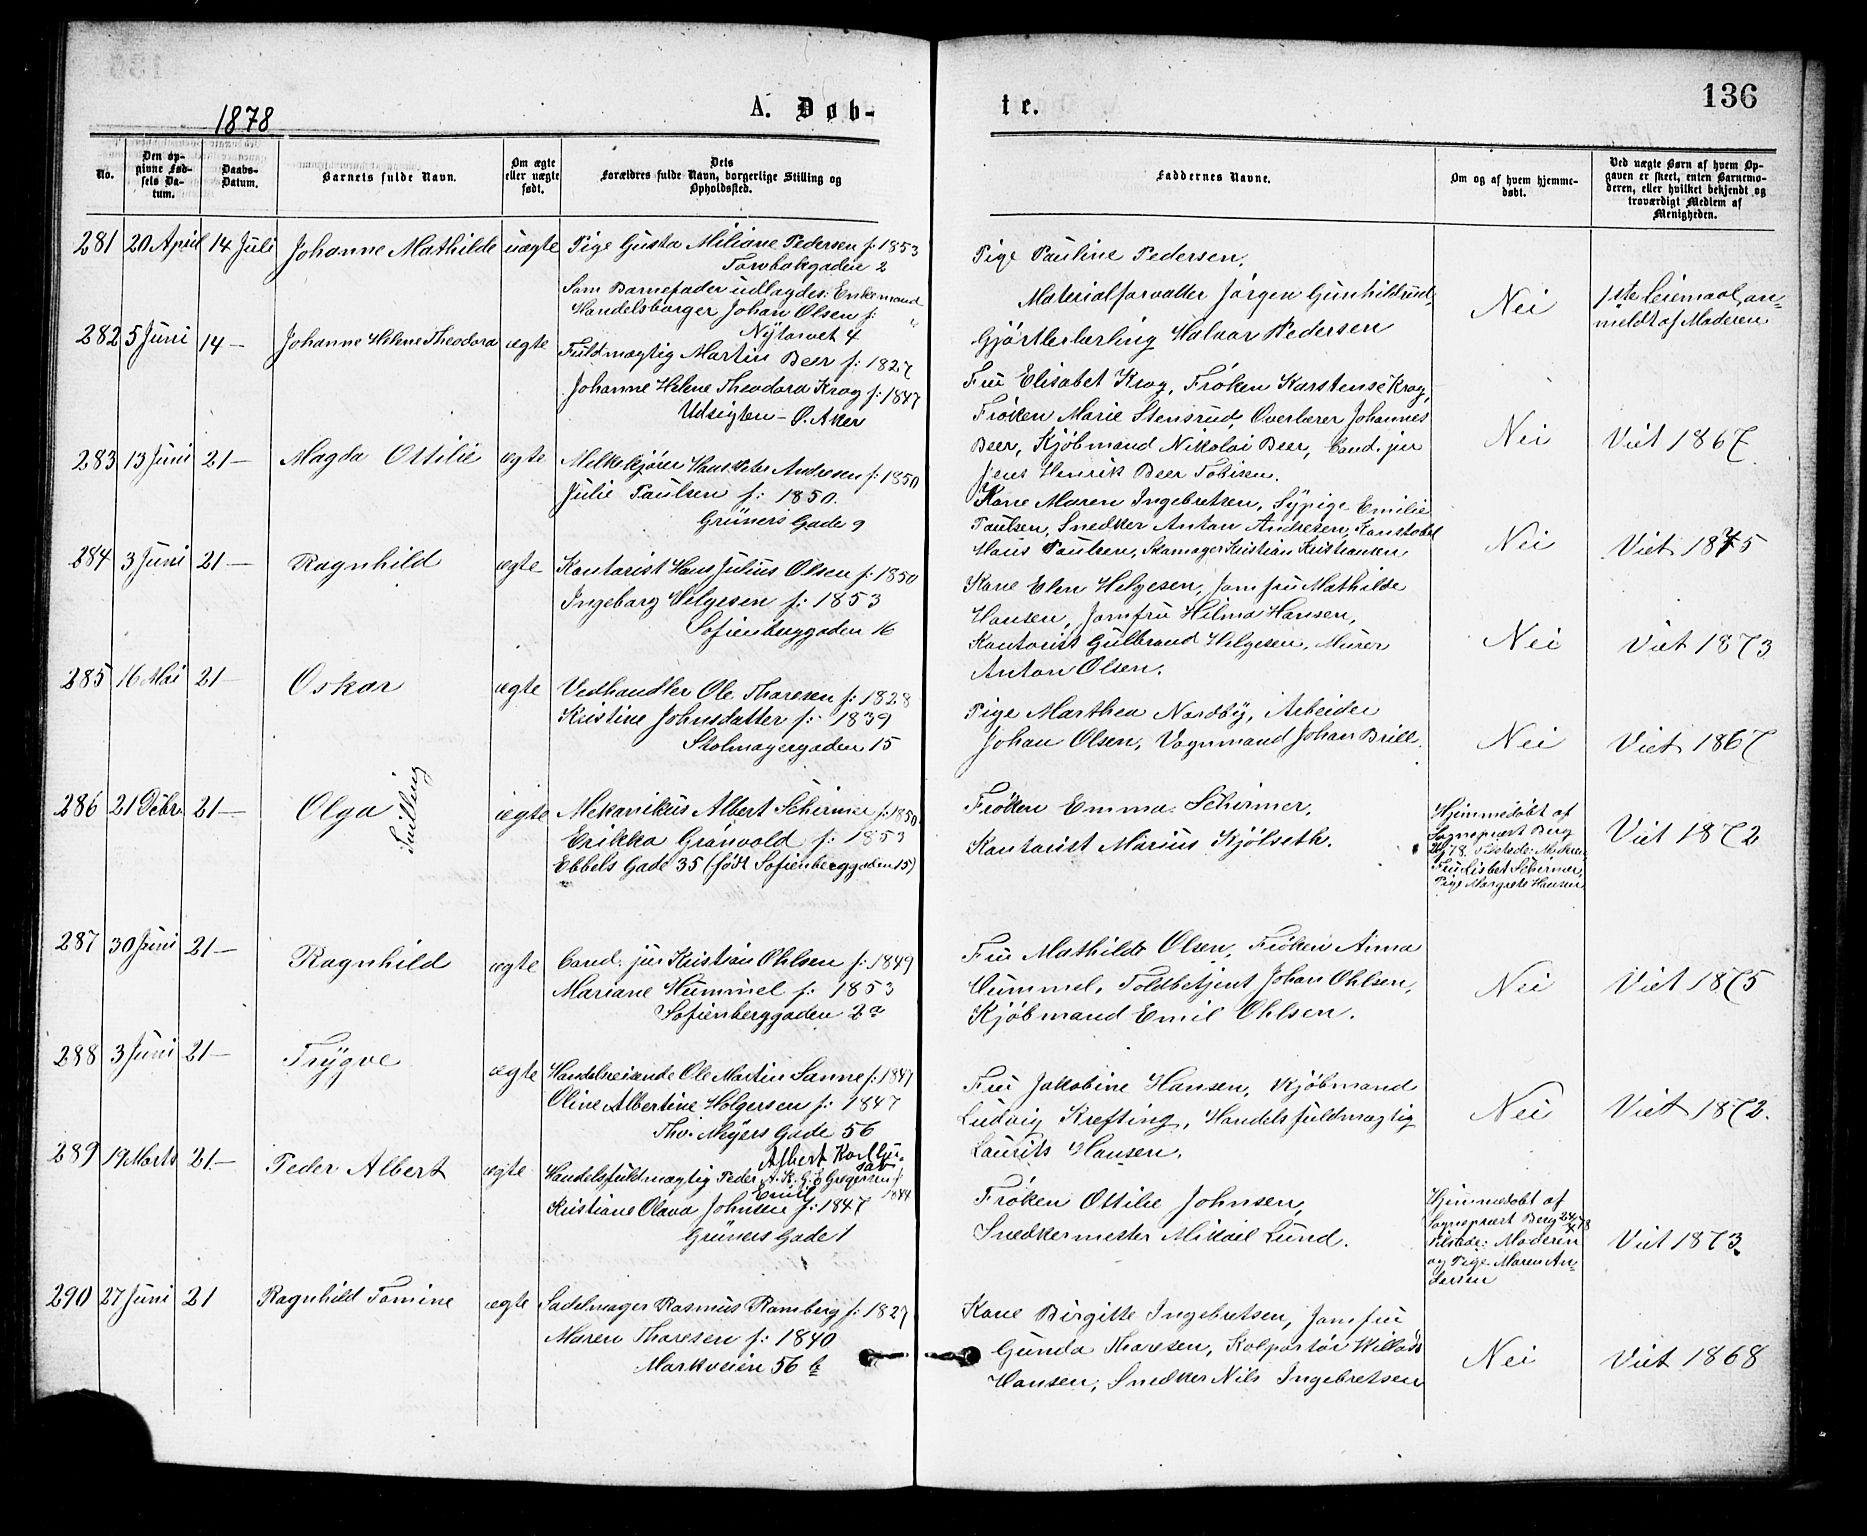 136
1878
A. Døb-
te.
No.
Den op-
givne Fød-
sels Da-
tum.
Daabs-
Datum.
Barnets fulde Navn.
Om ægte
eller uægte
født.
Dets
Forældres fulde Navn, borgerlige Stilling og
Opholdssted.
Faddernes Navne.
Om og af hvem hjemme-
døbt.
Ved uægte Børn af hvem Op-
gaven er skeet, enten Barnemo-
deren, eller hvilket bekjendt og
troværdigt Medlem af
Menigheden.
281 20 April 14 Juli Johanne Mathilde uægte Pige Gusta Miliane Pedersen f: 1853
Torvbakgaden 2
Som Barnefader udlagdes: Enkemand
Handelsborger Johan Olsen f: "
Nytorvet 4
Pige Pauline Pedersen,
Materialforvalter Jørgen Gunhildrud,
Gjørtlerlærling Halvar Pedersen
Nei
1ste Leiemaal, an-
meldt af Moderen
282 5 Juni 14 — Johanne Helene Theodora ægte Fuldmægtig Martin Beer f: 1827
Johanne Helene Theodora Krog f: 1847
Udsigten - Ø. Aker
Fru Elisabet Krog, Frøken Karstense Krog,
Frøken Marie Stensrud, Overlærer Johannes
Beer, Kjøbmand Nikolai Beer, Cand. jur
Jens Henrik Beer Tobisen.
Nei
Viet 1867
283 13 Juni 21 — Magda Ottilie ægte Melkekjører Hans Peter Andresen f: 1850
Julie Paulsen f: 1850.
Grüners Gade 9
Kone Maren Ingebretsen, Sypige Emilie
Paulsen, Snedker Anton Andresen, Konstabel
Hans Paulsen, Skomager Kristian Kristiansen
Nei
Viet 1875
284 3 Juni 21 — Ragnhild ægte Kontorist Hans Julius Olsen f: 1850
Ingeborg Helgesen f: 1853
Sofienberggaden 16
Kone Elen Helgesen, Jomfru Mathilde
Hansen, Jomfru Hilma Hansen,
Kontorist Gulbrand Helgesen, Murer
Anton Olsen.
Nei
Viet 1873
285 16 Mai 21 — Oskar ægte Vedhandler Ole Thoresen f: 1828
Kristine Johnsdatter f: 1839
Stolmagergaden 15
Pige Marthea Nordby, Arbeider
Johan Olsen, Vognmand Johan Brill.
Nei
Viet 1867
286 21 Debr. 21 — Olga Tvilling ægte Mekanikus Albert Schirmer f: 1850
Erikka Grønvold f: 1853
Ebbels Gade 35 (født Sofienberggaden 15)
Frøken Emma Schirmer,
Kontorist Marius Kjølseth.
Hjemmedøbt af
Sognepræst Berg
78. Tilstede: Moderen,
Fru Lisbet Schirmer,
Pige Margrete Hansen
Viet 1872
287 30 Juni 21 — Ragnhild ægte Cand. jur Kristian Ohlsen f: 1849
Mariane Hummel f: 1853
Sofienberggaden 2a
Fru Mathilde Olsen, Frøken Anna
Hummel, Toldbetjent Johan Ohlsen,
Kjøbmand Emil Ohlsen.
Nei
Viet 1875
288 3 Juni 21 — Trygve ægte Handelsreisende Ole Martin Sanne f: 1847
Oline Albertine Holgersen f: 1847
Thv. Meyers Gade 56
Fru Jakobine Hansen, Kjøbmand
Ludvig Krefting, Handelsfuldmægtig
Laurits Hansen.
Nei
Viet 1872.
289 19 Marts 21 — Peder Albert ægte Albert Karl Gu-
stav
Handelsfuldmægtig Peder A. K. G. E. Gregersen f:
Emil 1844
Kristiane Olava Johnsen f: 1847
Grüners Gade 1
Frøken Ottilie Johnsen,
Snedkermester Mikael Lund.
Hjemmedøbt af
Sognepræst Berg 78
Tilstede: Moderen
og Pige Maren An-
dersen
Viet 1873
290 27 Juni 21 Ragnhild Tomine ægte Sadelmager Rasmus Ramberg f: 1827
Maren Thoresen f: 1840
Markveien 56 b
Kone Birgitte Ingebretsen, Jomfru
Gunda Thoresen, Kolportør Willads
Hansen, Snedker Nils Ingebretsen
Nei
Viet 1868